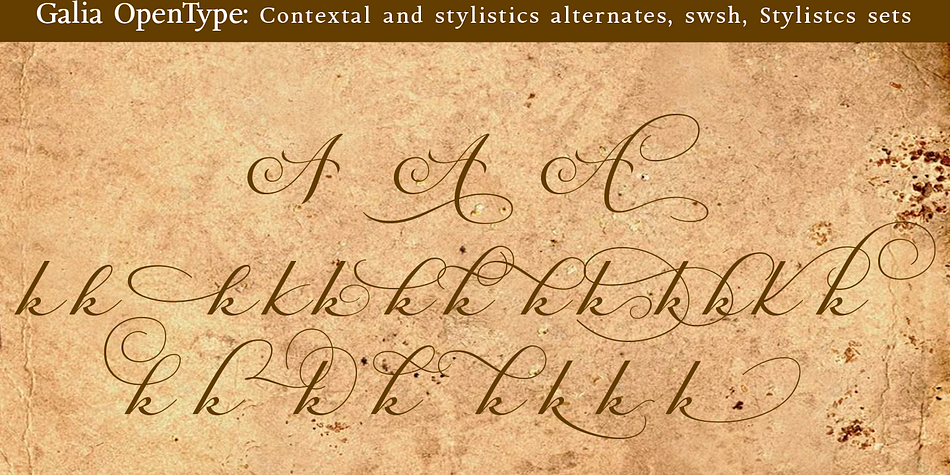 Galia OpenType: Contextal and stylistics alternates, swsh, Stylistcs sets
A A A
k k k k k k k k k k k k k
k k k k k k k k